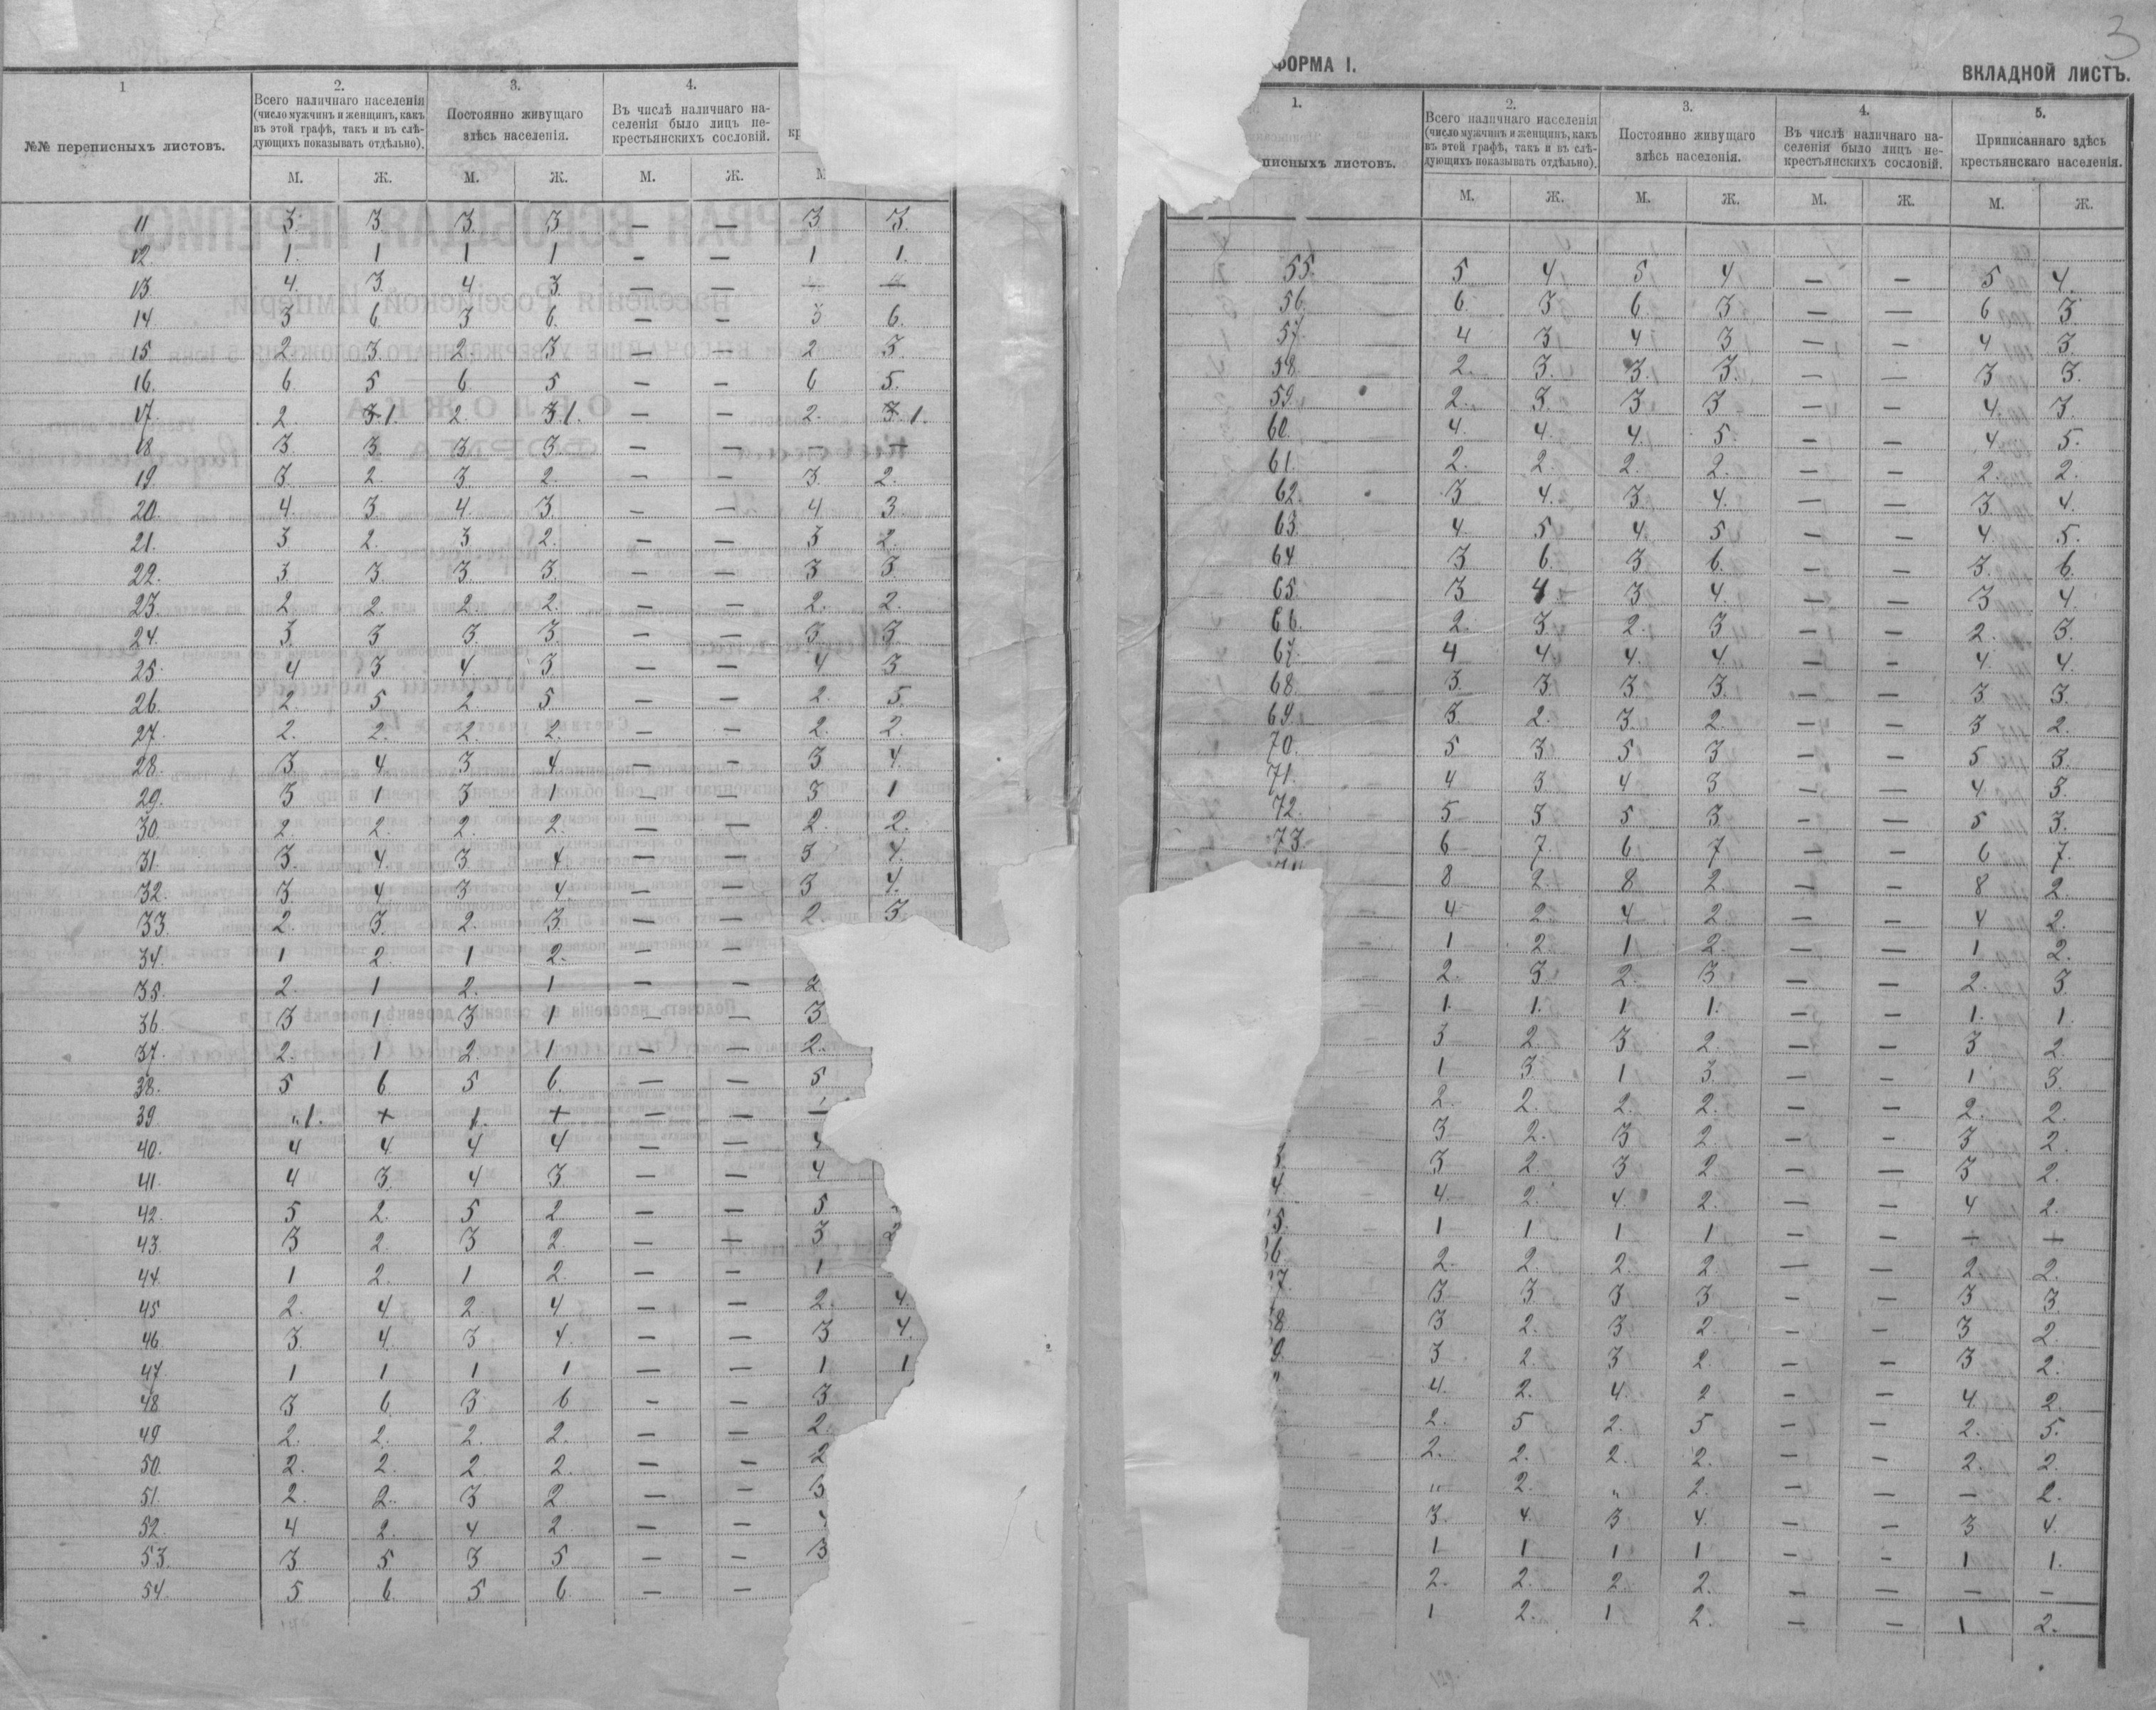 3
ФОРМА I.
ВКЛАДНОЙ ЛИСТЪ.
1 2. 3. 4.
№№ переписныхъ листовъ.
Всего наличнаго населенія
(число мужчинъ и женщинъ, какъ
въ этой графѣ, такъ и въ слѣ-
дующихъ показывать отдѣльно).
Постоянно живущаго
здѣсь населенія.
Въ числѣ наличнаго на-
селенія было лицъ не-
крестьянскихъ сословій.
кр
М. Ж. М. Ж. М. Ж. М
11 3. 3 3. 3 — — 3 3.
12. 1. 1 1 1 — — 1 1.
13. 4. 3. 4 3. — — — —
14 3 6. 3 6. — — 3 6.
15 2. 3. 2. 3 — — 2 3.
16. 6. 5 6 5 — — 6 5.
17. 2. 3.1. 2. 3.1. — — 2. 3.1.
18 3. 3. 3. 3. — — — —
19. 3. 2. 3 2. — — 3. 2.
20. 4. 3 4. 3. — — 4 3
21. 3 2. 3 2. — — 3 2.
22. 3. 3 3. 3. — — 3 3.
23. 2 2. 2. 2. — — 2. 2.
24. 3. 3 3. 3. — — 3 3
25. 4 3 4 3. — — 4 3
26. 2. 5 2. 5 — — 2. 5.
27. 2. 2. 2. 2. — — 2. 2.
28. 3 4 3 4 — — 3 4.
29. 3 1 3 1 — — 3 1
30. 2. 2. 2. 2. — — 2. 2.
31. 3. 4. 3. 4 — — 3 4.
32. 3. 4 3 4 — — 3 4.
33. 2. 3. 2. 3. — — 2. 3
34. 1 2. 1 2. — —
35. 2. 1 2. 1 — — 2
36. 3 1. 3 1 — — 3
37. 2. 1 2. 1 — — 2.
38. 5 6. 5 6. — — 5
39 „1. + 1. + — — —
40. 4 4. 4 4 — — 4
41. 4 3. 4 3. — — 4
42. 5 2. 5 2 — — 5
43. 3 2. 3 2. — — 3 2
44. 1 2. 1 2. — — 1
45 2. 4 2 4 — — 2. 4.
46 3. 4 3 4. — — 3 4.
47 1 1 1 1 — — 1 1
48 3 6. 3 6 — — 3
49 2. 2. 2. 2. — — 2.
50. 2. 2 2. 2. — — 2
51. 2. 2. 3 2 — — 3
52. 4 2. 4 2 — —
53. 3 5 3 5 — — 3
54. 5 6. 5 6 — —
1. 2. 3. 4. 5.
писныхъ листовъ.
Всего наличнаго населенія
(число мужчинъ и женщинъ, какъ
въ этой графѣ, такъ и въ слѣ-
дующихъ показывать отдѣльно).
Постоянно живущаго
здѣсь населенія.
Въ числѣ наличнаго на-
селенія было лицъ не-
крестьянскихъ сословій.
Приписаннаго здѣсь
крестьянскаго населенія.
М. Ж. М. Ж. М. Ж. М. Ж.
55. 5 4 5 4 — — 5 4.
56. 6. 3 6. 3 — — 6 3
57. 4 3 4 3 — — 4 3.
58. 2. 3. 3. 3. — — 3 3.
59. 2. 3. 3 3 — — 4. 3.
60. 4. 4. 4. 5 — — 4. 5.
61. 2. 2. 2. 2. — — 2. 2.
62. 3 4. 3. 4. — — 3. 4.
63. 4 5 4. 5 — — 4. 5.
64 3 6. 3 6. — — 3. 6.
65. 3 4 3 4. — — 3 4.
66. 2. 3. 2. 3 — — 2. 3.
67. 4 4. 4. 4. — — 4. 4.
68. 3. 3. 3 3. — — 3 3.
69. 3. 2. 3. 2. — — 3 2.
70. 5 3 5 3 — — 5 3.
71. 4 3 4 3 — — 4. 3.
72. 5 3 5 3. — — 5 3.
73. 6 7. 6 7 — — 6 7.
8 2. 8 2. — — 8 2.
4 2. 4 2 — — 4 2.
1 2. 1 2. — — 1 2.
2. 3. 2. 3 — — 2. 3.
1. 1. 1 1. — — 1. 1.
3 2. 3 2. — — 3 2.
1 3. 1 3. — — 1. 3.
2. 2. 2. 2. — — 2. 2.
3 2. 3 2 — — 3 2.
3. 3 2. 3 2 — — 3 2.
4. 4. 2. 4. 2. — — 4 2.
5. 1 1 1 1 — — + +
6. 2. 2. 2. 2. — — 2. 2.
7. 3 3 3 3 — — 3 3.
8. 3 2. 3 2. — — 3 2.
9. 3 2. 3 2. — — 3 2.
„ 4. 2. 4. 2 — — 4. 2.
2. 5 2. 5 — — 2. 5.
2. 2. 2. 2. — — 2. 2.
„ 2. „ 2. — — — 2.
3. 4. 3 4. — — 3 4.
1 1 1 1 — — 1 1.
2. 2. 2 2. — — — —
1 2. 1 2. — — 1 2.